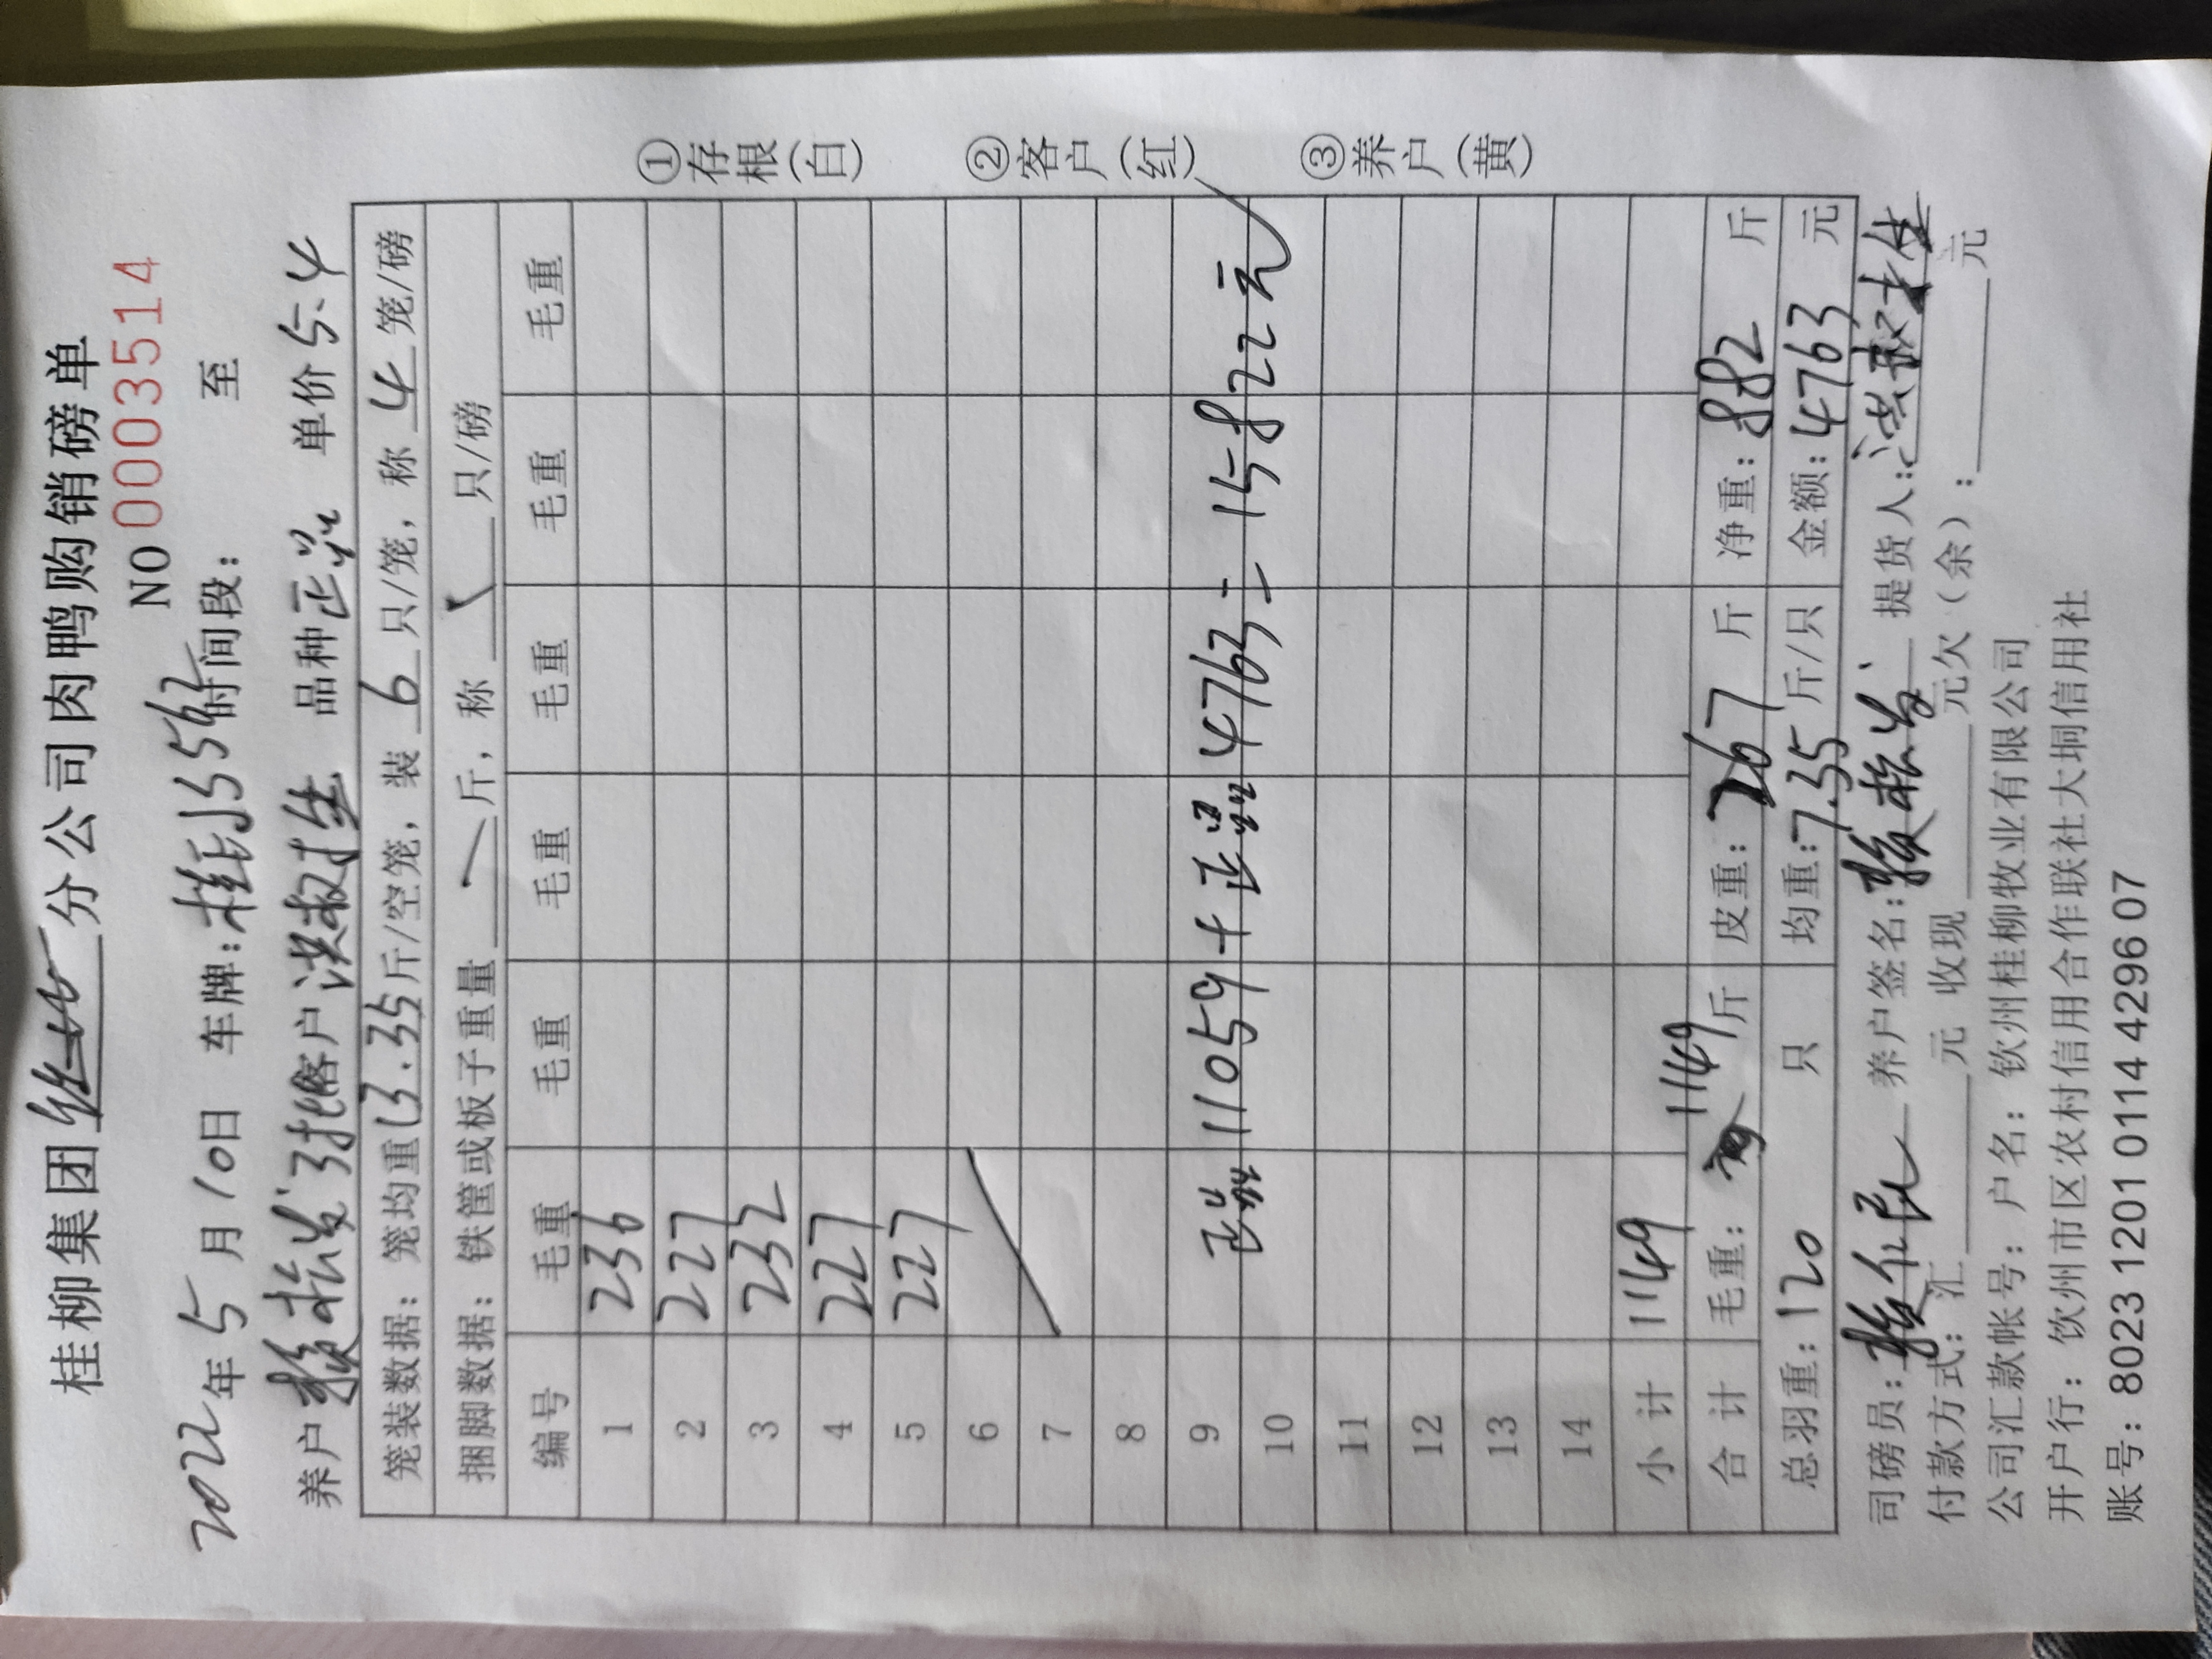 桂柳集团 分公司肉鸭购销磅单
NO 0003514
2022年5月10日 车牌:桂J3556 时间段: 至
养户 客户 洪叔生 品种 正 单价 5.4
笼装数据:笼均重 13.35 斤/空笼,装 6 只/笼,称 4 笼/磅
捆脚数据:铁筐或板子重量 斤,称 只/磅
编号 毛重 毛重 毛重 毛重 毛重 毛重
1 236
2 227
3 232
4 227
5 227
6
7
8
9
正 11059+正 4763=15822元
10
11
12
13
14
小计 1149
合计 毛重: 1149 斤 皮重:267 斤 净重:882 斤
总羽重:120 只 均重:7.35 斤/只 金额:4763 元
司磅员: 养户签名: 提货人:洪叔生
付款方式:汇 元 收现 元欠(余): 元
公司汇款帐号:户名:钦州桂柳牧业有限公司
开户行:钦州市区农村信用合作联社大垌信用社
账号:8023 1201 0114 4296 07
①存根(白) ②客户(红) ③养户(黄)